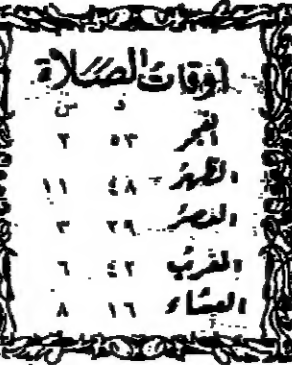 اوقات الصلاة
د س
الفجر ٥٣ ٣
الظهر ٤٨ ١١
العصر ٢٩ ٣
المغرب ٤٢ ٦
العشاء ١٦ ٨